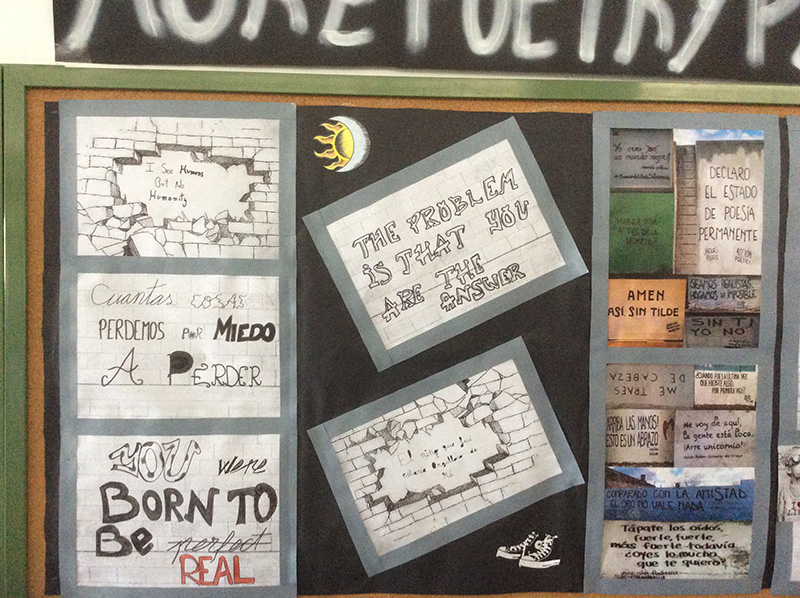 MORE POETRY P
I See Humans
But No
Humanity
Cuantas COSAS
PERDEMOS POR MIEDO
A PERDER
YOU were
BORN TO
Be perfect
REAL
THE PROBLEM
IS THAT YOU
ARE THE
ANSWER
DECLARO
EL ESTADO
DE POESÍA
PERMANENTE
ACCIÓN
AMEN
ASÍ, SIN TILDE
SEAMOS REALISTAS
HAGAMOS LO IMPOSIBLE
SIN TI
YO NO
ME TRAES
DE CABEZA
¿CUANDO FUE LA ÚLTIMA VEZ
QUE HICISTE ALGO
POR PRIMERA VEZ?
ARRIBA LAS MANOS!
ESTO ES UN ABRAZO
Me voy de aquí,
la gente está loca.
¡Arre unicornio!
COMPARADO CON LA AMISTAD
EL ORO NO VALE NADA
Tápate los oídos,
fuerte, fuerte,
más fuerte todavía
¿oyes lo mucho
que te quiero?